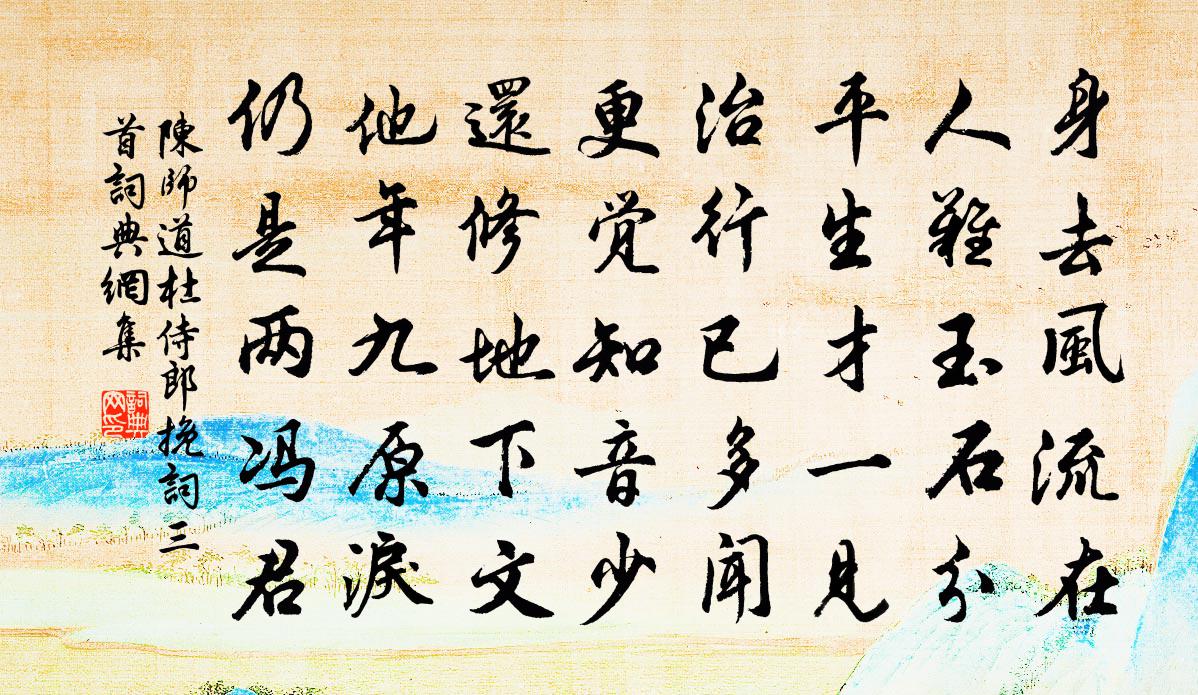 身去風流在
人難玉石分
平生才一見
治行已多聞
更觉知音少
還修地下文
他年九原淚
仍是两冯君
陳師道杜侍郎挽詞三
首詞典網集
詞典
网印